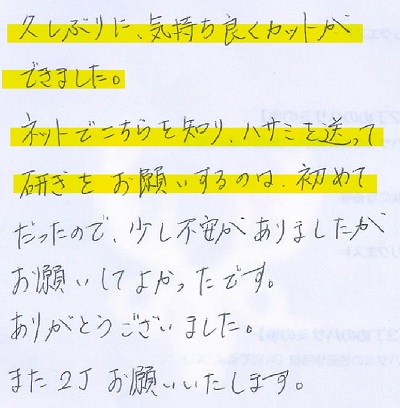 久しぶりに、気持ち良くカットが
できました。
ネットでこちらを知り、ハサミを送って
研ぎをお願いするのは、初めて
だったので、少し不安がありましたが
お願いしてよかったです。
ありがとうございました。
また2丁お願いいたします。